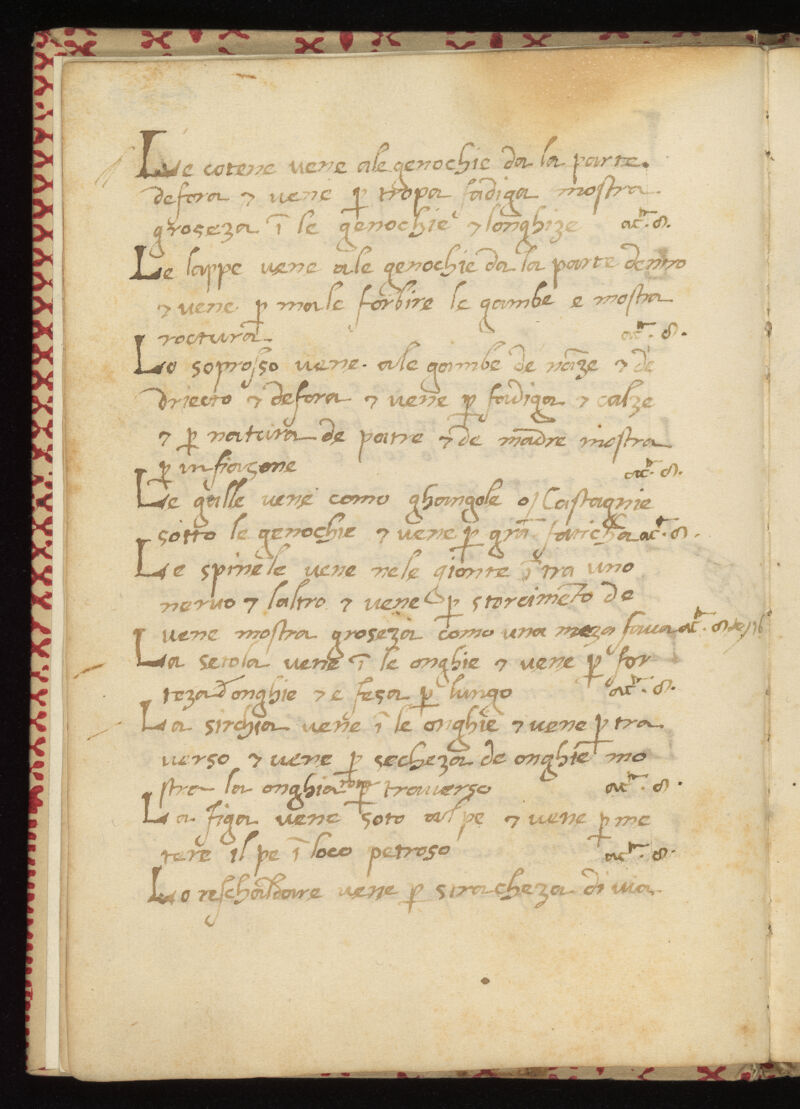 Le cotene vene ale genochie da la parte.
defora ⁊ vene ꝑ tropa fadiga mostra
groseza ī le genochie ⁊ longhize
Le lappe vene ale genochie da la parte dentro
⁊ vene ꝑ male forbire le gambe e mostra
roctura
Lo soprosso vene. ale gambe de nāze ⁊ de
driecto ⁊ defora ⁊ vene ꝑ fadiga ⁊ calze
⁊ ꝑ natura de patre ⁊ de madre mostra
ꝑ infiasone
Le galle vene como ghangole o/ Castagnie
sotto le genochie ⁊ vene ꝑ grā faticha
Le spinele vene nele gionte ītra uno
nervo ⁊ laltro ⁊ vene ꝑ storcimēto de
vene mostra groseza como una meza fava
La setola vene ī le onghie ⁊ vene ꝑ for
teza d onghie ⁊ e fesa ꝑ lungo
La sirchia vene ī le onghie ⁊ vene ꝑ tra
verso ⁊ vene ꝑ secheza de onghie mo
stra la onghia ꝑ traverso
La figa vene soto al pe ⁊ vene ꝑ me
tere il pe ī loco petroso
Lo reschaldare vene ꝑ stracheza di via